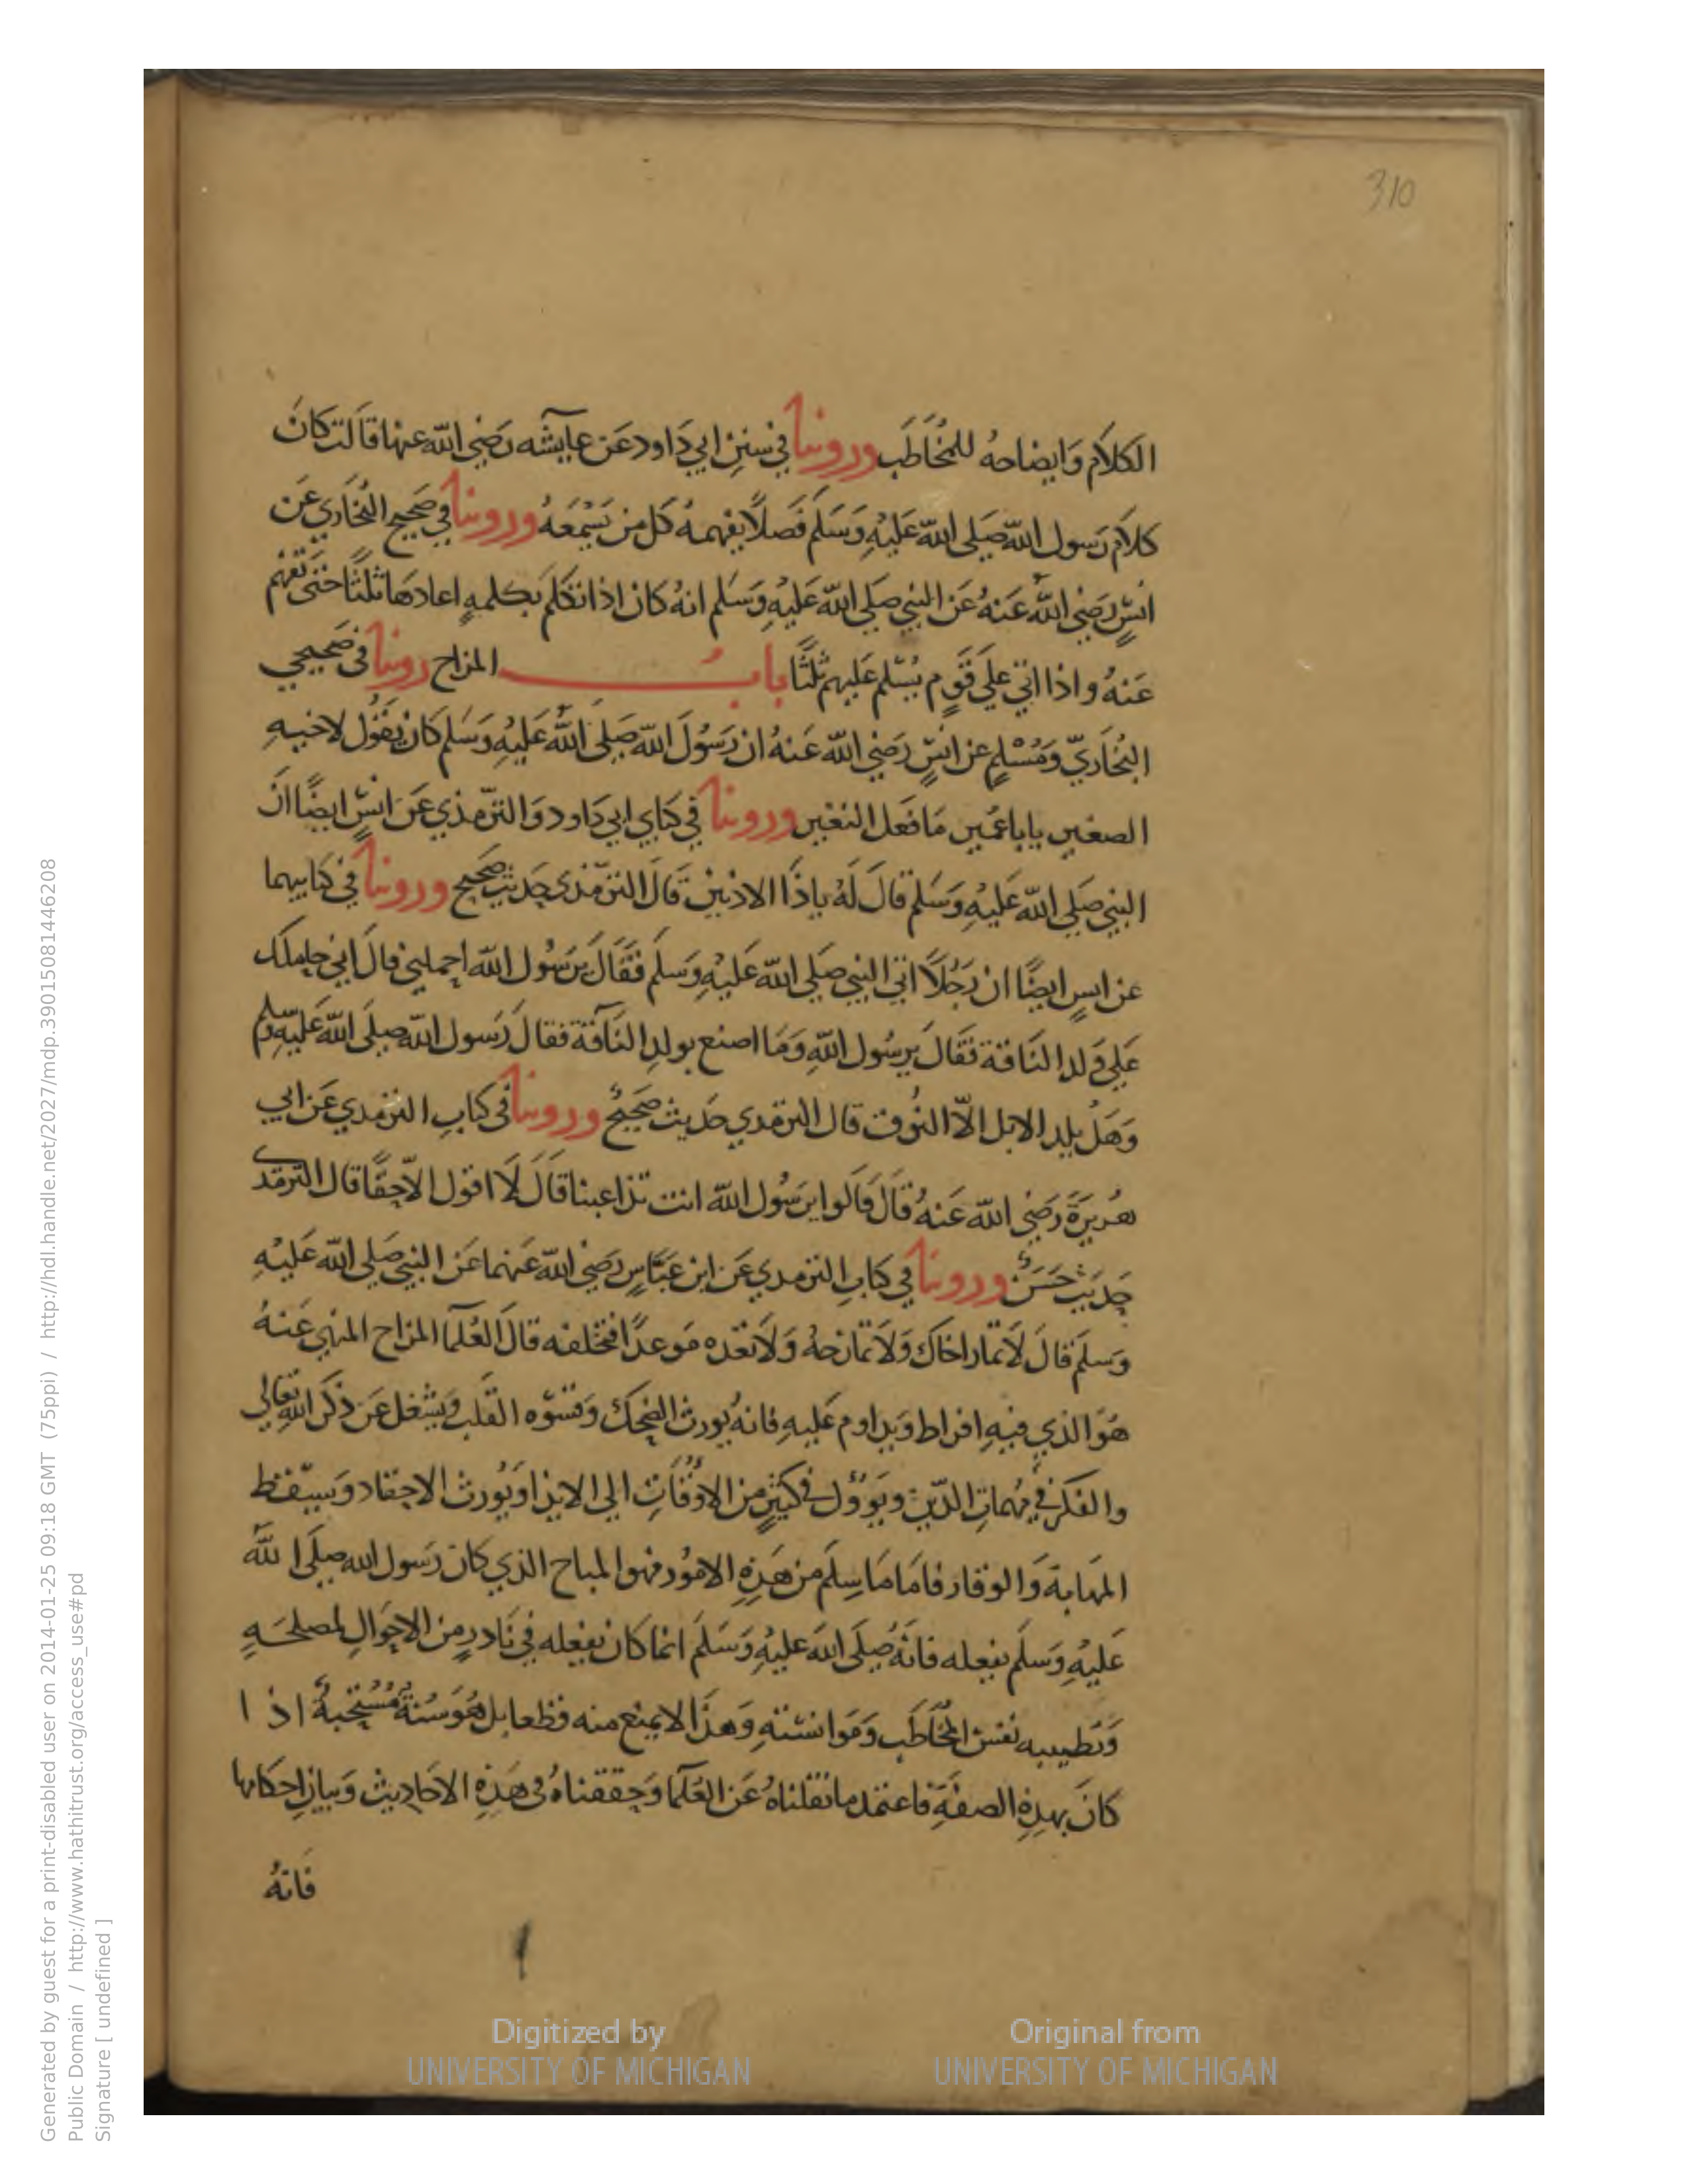 310
الكلام وايضاحه للمخاطب وروينا في سنن ابي داود عن عايشه رضي الله عنها قالت كان
كلام رسول الله صلى الله عليه وسلم فصلا يفهمه كل من يسمعه وروينا في صحيح البخاري عن
انس رضي الله عنه عن النبي صلى الله عليه وسلم انه كان اذا تكلم بكلمه اعادها ثلثا حتى تفهم
عنه واذا اتي علي قوم يسلم عليهم ثلثا باب المزاح روينا في صحيحي
البخاري ومسلم عن انس رضي الله عنه ان رسول الله صلى الله عليه وسلم كان يقول لاخيه
الصغير يابا عمير ما فعل النغير وروينا في كتابي ابي داود والترمذي عن انس ايضا ان
النبي صلى الله عليه وسلم قال له ياذا الاذنين قال الترمذي حديث صحيح وروينا في كتابيهما
عن انس ايضا ان رجلا اتي النبي صلى الله عليه وسلم فقال يرسول الله احملني قال اني حاملك
علي ولد الناقة فقال يرسول الله وما اصنع بولد الناقة فقال رسول الله صلى الله عليه وسلم
وهل يلد الابل الا النوق قال الترمذي حديث صحيح وروينا في كتاب الترمذي عن ابي
هريرة رضي الله عنه قال قالوا يرسول الله انت تداعبنا قال لا اقول الا حقا قال الترمذي
حديث حسن وروينا في كتاب الترمذي عن ابن عباس رضي الله عنهما عن النبي صلى الله عليه
وسلم قال لا تمار اخاك ولا تمازحه ولا تعده موعدا فتخلفه قال العلما المزاح المنهي عنه
هو الذي فيه افراط ويداوم عليه فانه يورث الضحك وقسوه القلب ويشغل عن ذكر الله تعالى
والفكر في مهمات الدين ويوول في كثير من الاوقات الي الايذا ويورث الاحقاد ويسقط
المهابة والوقار فاما ما سلم من هذه الامور فهو المباح الذي كان رسول الله صلى الله
عليه وسلم يفعله فانه صلى الله عليه وسلم انما كان يفعله في نادر من الاحوال لمصلحه
وتطييبه نفس المخاطب وموانسته وهذا لا يمنع منه قطعا بل هو سنة مستحبة اذا
كان بهذه الصفة فاعتمد ما نقلناه عن العلما وحققناه في هذه الاحاديث وبيان احكامها
فانه
Digitized by
UNIVERSITY OF MICHIGAN
Original from
UNIVERSITY OF MICHIGAN
Generated by guest for a print-disabled user on 2014-01-25 09:18 GMT (75ppi) / http://hdl.handle.net/2027/mdp.39015081446208
Public Domain / http://www.hathitrust.org/access_use#pd
Signature [ undefined ]